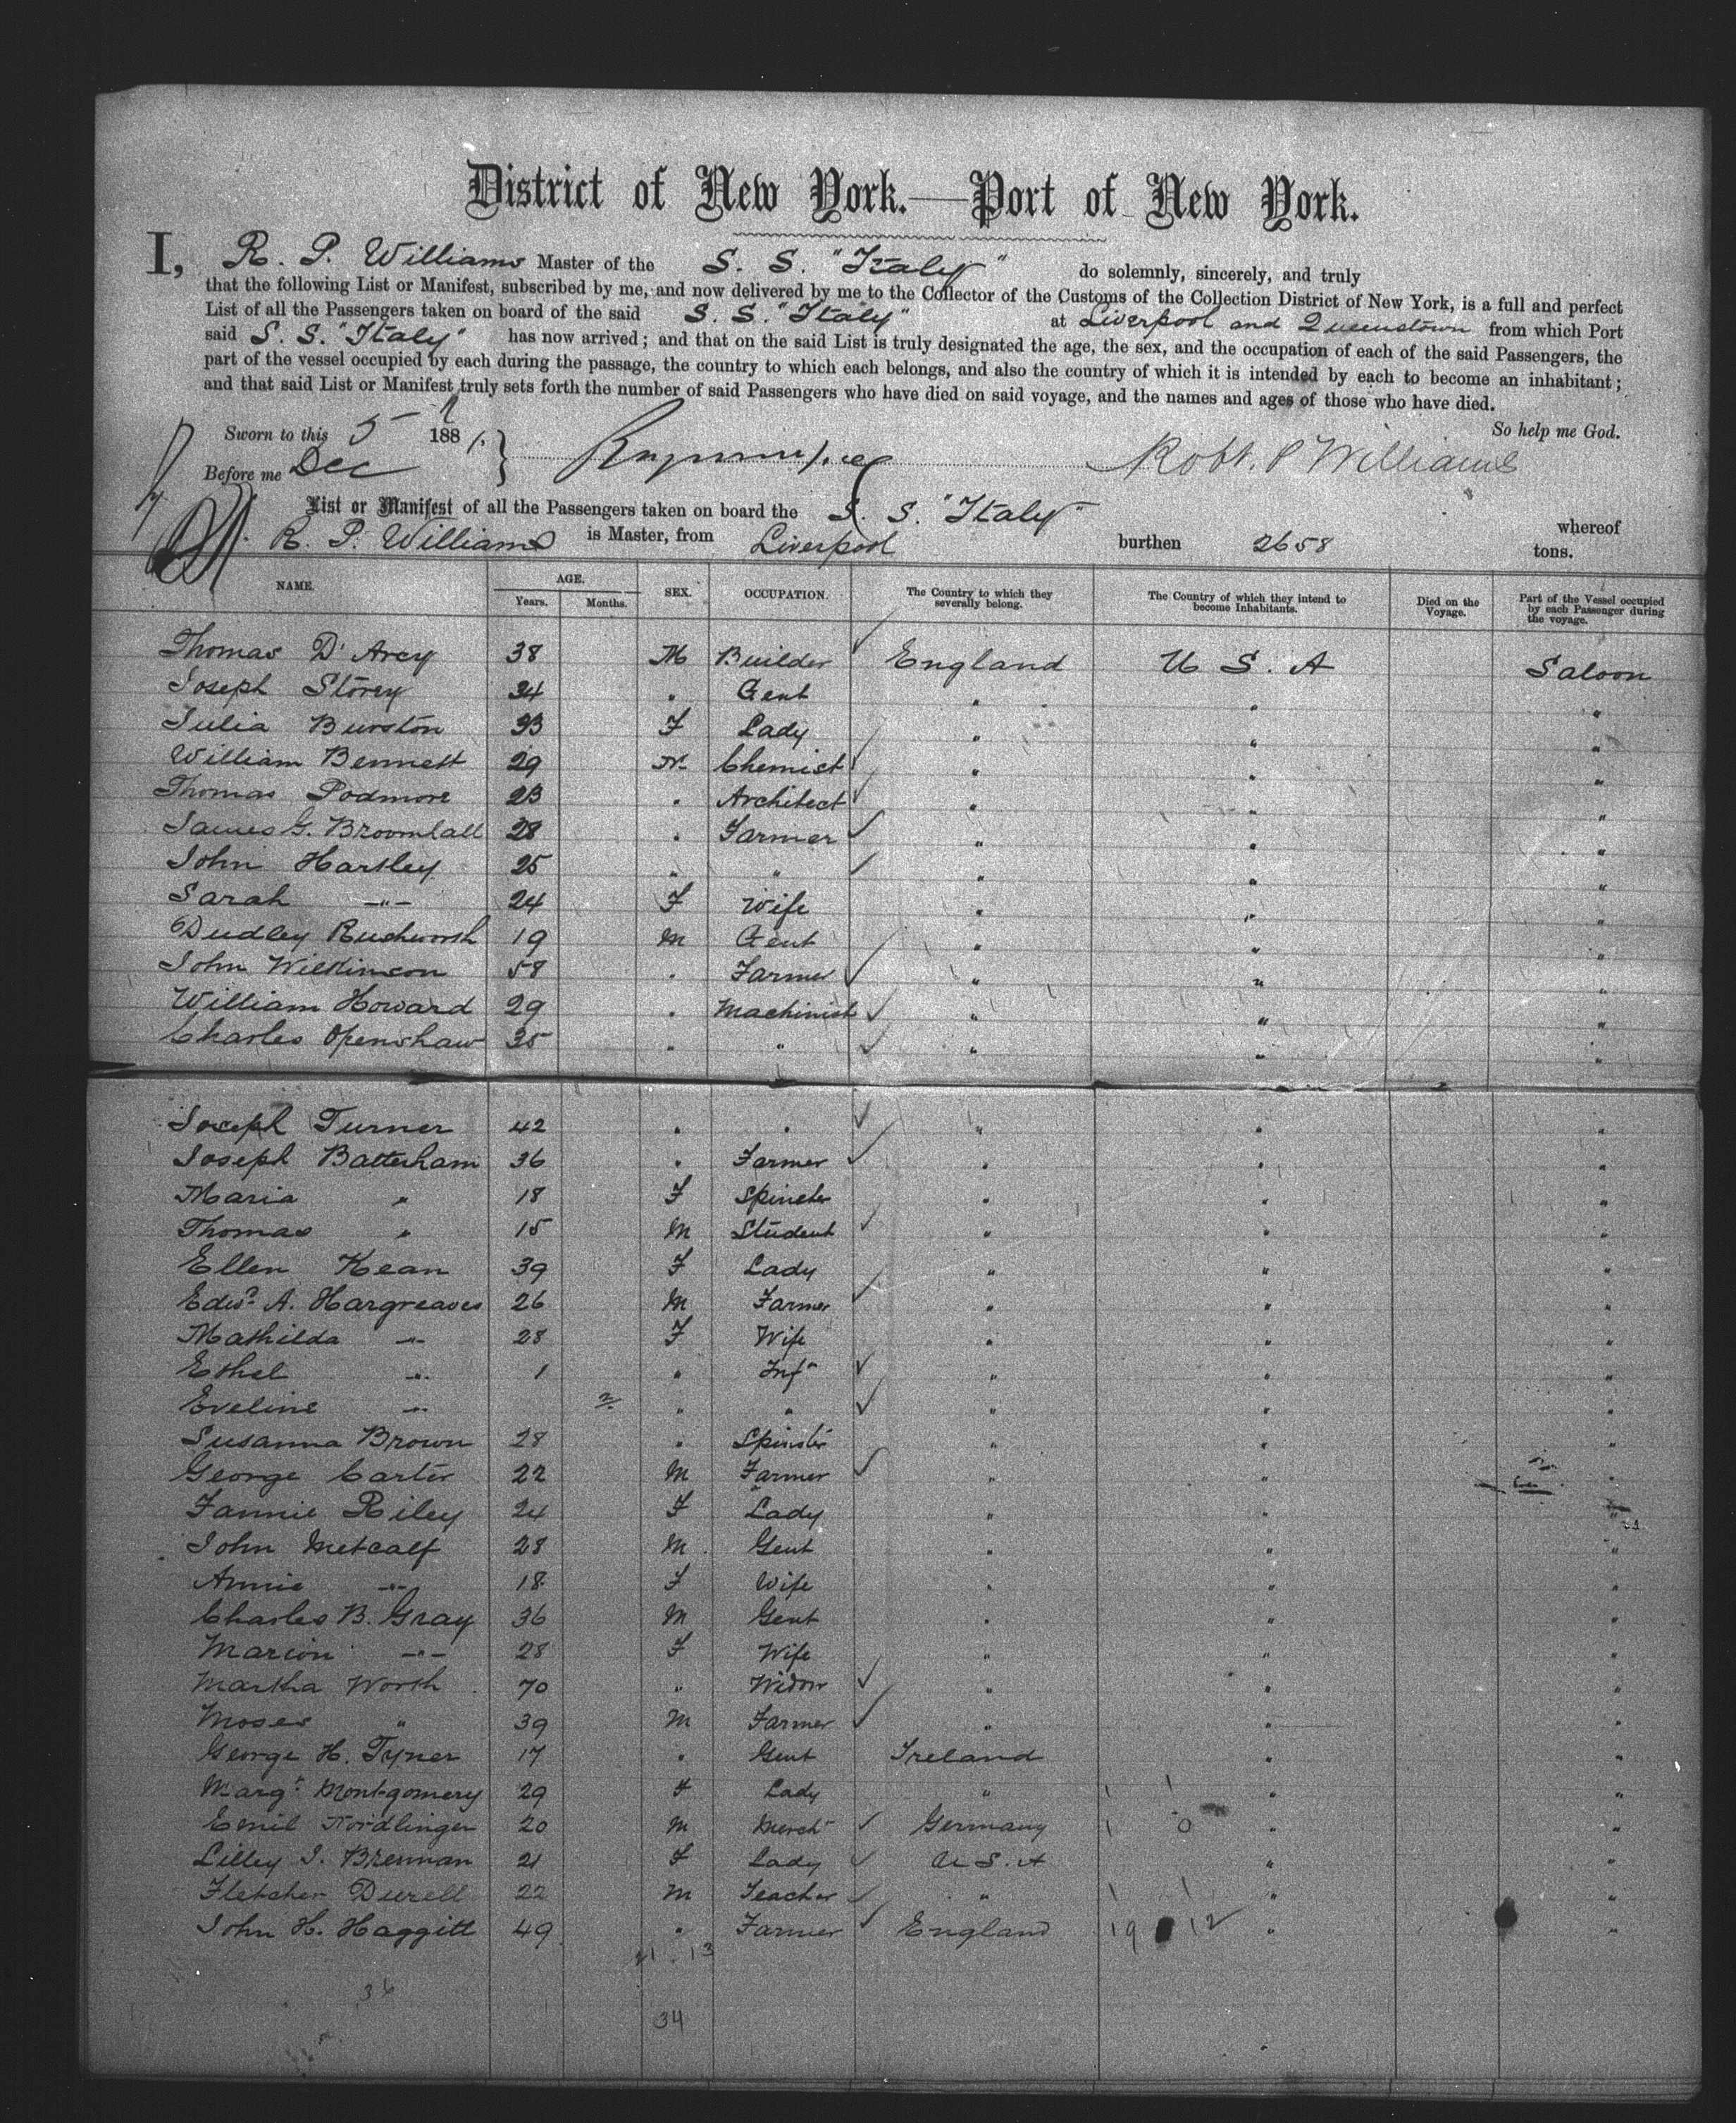 District of New York.—Port of New York.
I, R. P. Williams Master of the S. S. "Italy" do solemnly, sincerely, and truly
that the following List or Manifest, subscribed by me, and now delivered by me to the Collector of the Customs of the Collection District of New York, is a full and perfect
List of all the Passengers taken on board of the said S. S. "Italy" at Liverpool and Queenstown from which Port
said S. S. "Italy" has now arrived; and that on the said List is truly designated the age, the sex, and the occupation of each of the said Passengers, the
part of the vessel occupied by each during the passage, the country to which each belongs, and also the country of which it is intended by each to become an inhabitant;
and that said List or Manifest truly sets forth the number of said Passengers who have died on said voyage, and the names and ages of those who have died.
So help me God.
Sworn to this 5 188
Before me Dec Robt. P Williams
List or Manifest of all the Passengers taken on board the S. S. "Italy" whereof
R. P. Williams is Master, from Liverpool burthen 2658 tons.
NAME. AGE. Years. Months. SEX. OCCUPATION. The Country to which they severally belong. The Country of which they intend to become Inhabitants. Died on the Voyage. Part of the Vessel occupied by each Passenger during the voyage.
Thomas D'Arcy 38 M Builder England U S. A Saloon
Joseph Storey 34 " Gent " " "
Julia Burston 33 F Lady " " "
William Bennett 29 M Chemist " " "
Thomas Podmore 23 " Architect " " "
James G. Broomhall 28 " Farmer " " "
John Hartley 25 " " " " "
Sarah " 24 F Wife " " "
Dudley Rushworth 19 M Gent " " "
John Wilkinson 58 " Farmer " " "
William Howard 29 " Machinist " " "
Charles Openshaw 35 " " " " "
Joseph Turner 42 " " " " "
Joseph Batterham 36 " Farmer " " "
Maria " 18 F Spinster " " "
Thomas " 15 M Student " " "
Ellen Kean 39 F Lady " " "
Edwd. A. Hargreaves 26 M Farmer " " "
Mathilda " 28 F Wife " " "
Ethel " 1 " Inft " " "
Eveline " " " " " "
Susanna Brown 28 " Spinster " " "
George Carter 22 M Farmer " " "
Fannie Riley 24 F Lady " " "
John Metcalf 28 M Gent " " "
Annie " 18 F Wife " " "
Charles B. Gray 36 M Gent " " "
Marion " 28 F Wife " " "
Martha Worth 70 " Widow " " "
Moses " 39 M Farmer " " "
George H. Tyner 17 " Gent Ireland " "
Margt. Montgomery 29 F Lady " " "
Emil Nordlinger 20 M Mercht Germany " "
Lilley J. Brennan 21 F Lady U S. A " "
Fletcher Durell 22 M Teacher " " "
John H. Haggitt 49 " Farmer England 19 12 " "
21 . 13
36
34